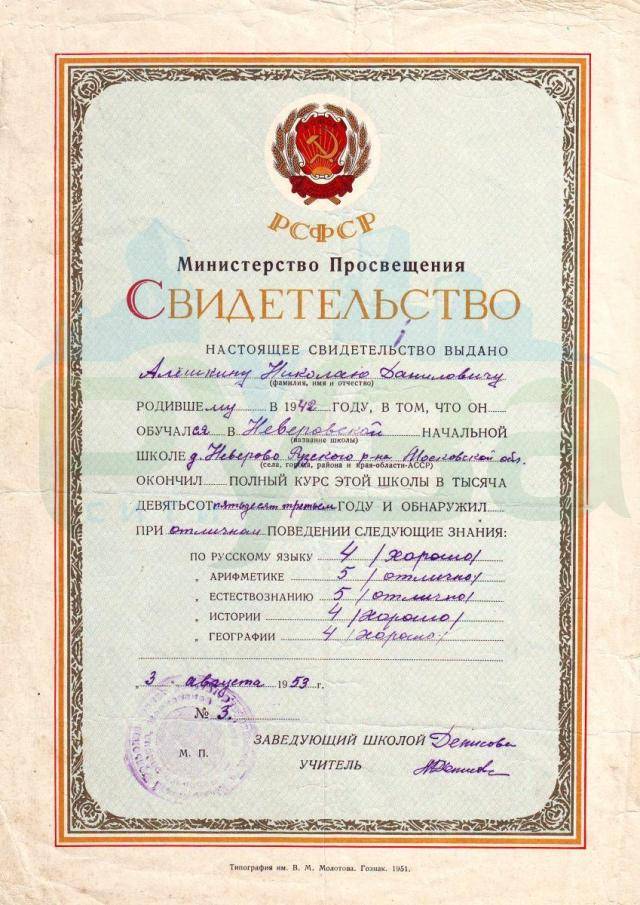 РСФСР
Министерство Просвещения
СВИДЕТЕЛЬСТВО
НАСТОЯЩЕЕ СВИДЕТЕЛЬСТВО ВЫДАНО
Алёшкину Николаю Даниловичу
(фамилия, имя и отчество)
РОДИВШЕму В 1942 ГОДУ, В ТОМ, ЧТО ОН
ОБУЧАЛся В Неверовской НАЧАЛЬНОЙ
(название школы)
ШКОЛЕ д. Неверово Рузского р-на Московской обл.
(села, города, района и края-области-АССР)
ОКОНЧИЛ ПОЛНЫЙ КУРС ЭТОЙ ШКОЛЫ В ТЫСЯЧА
ДЕВЯТЬСОТ пятьдесят третьем ГОДУ И ОБНАРУЖИЛ
ПРИ отличном ПОВЕДЕНИИ СЛЕДУЮЩИЕ ЗНАНИЯ:
ПО РУССКОМУ ЯЗЫКУ 4 /хорошо/
„ АРИФМЕТИКЕ 5 /отлично/
„ ЕСТЕСТВОЗНАНИЮ 5 /отлично/
„ ИСТОРИИ 4 /хорошо/
„ ГЕОГРАФИИ 4 /хорошо/
„3„ августа 1953 г.
№ 3.
ЗАВЕДУЮЩИЙ ШКОЛОЙ Денисова
М. П.
УЧИТЕЛЬ
Типография им. В. М. Молотова. Гознак. 1951.